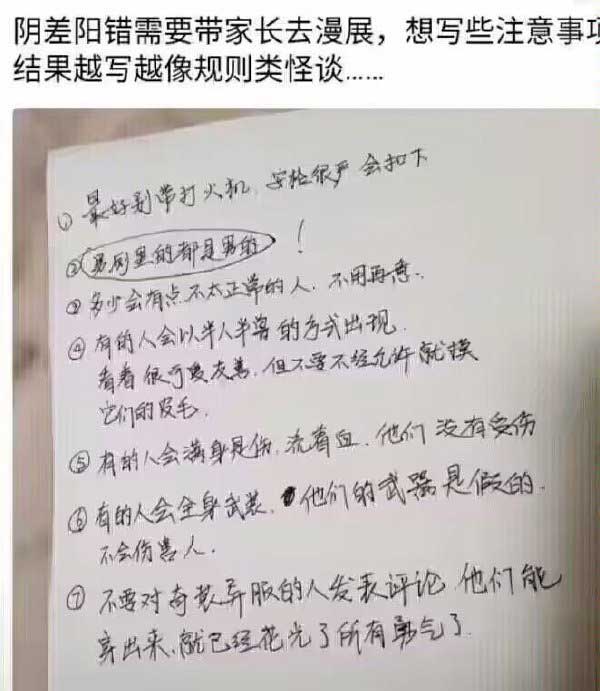 阴差阳错需要带家长去漫展，想写些注意事项
结果越写越像规则类怪谈……
① 最好别带打火机，安检很严 会扣下
② 男厕里的都是男的 ！
③ 多少会有点不太正常的人，不用再意..
④ 有的人会以半人半兽的方式出现.
看着很可爱友善，但不要不经允许就摸
它们的皮毛.
⑤ 有的人会满身是伤，流着血，他们没有受伤
⑥ 有的人会全身武装，他们的武器是假的.
不会伤害人.
⑦ 不要对奇装异服的人发表评论 他们能
穿出来，就已经花光了所有勇气了.